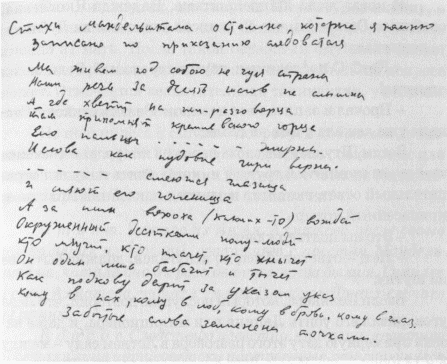 Стихи Мандельштама о Сталине которые я помню
Записано по приказанию следователя
Мы живем под собою не чуя страны
Наши речи за десять шагов не слышны
А где хватит на пол-разговорца
там припомнят кремлевского горца
Его пальцы . . . . . жирны.
И слова как пудовые гири верны.
. . . . . смеются глазища
и сияют его голенища
А за ним (каких-то) вождей
Окруженный десятками полу-людей
кто мяучит, кто плачет, кто хнычет
Он один лишь бабачит и тычет
Как подкову дарит за указом указ
кому в пах, кому в лоб, кому в бровь, кому в глаз.
Забытые слова заменены точками.